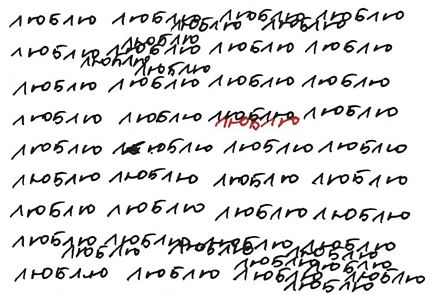 люблю люблю люблю люблю
люблю люблю
люблю
люблю люблю люблю люблю
люблю
люблю
люблю люблю люблю люблю
люблю люблю люблю люблю
люблю
люблю люблю люблю люблю
люблю люблю люблю люблю
люблю люблю люблю люблю
люблю люблю люблю люблю
люблю люблю
люблю люблю люблю люблю
люблю люблю
люблю